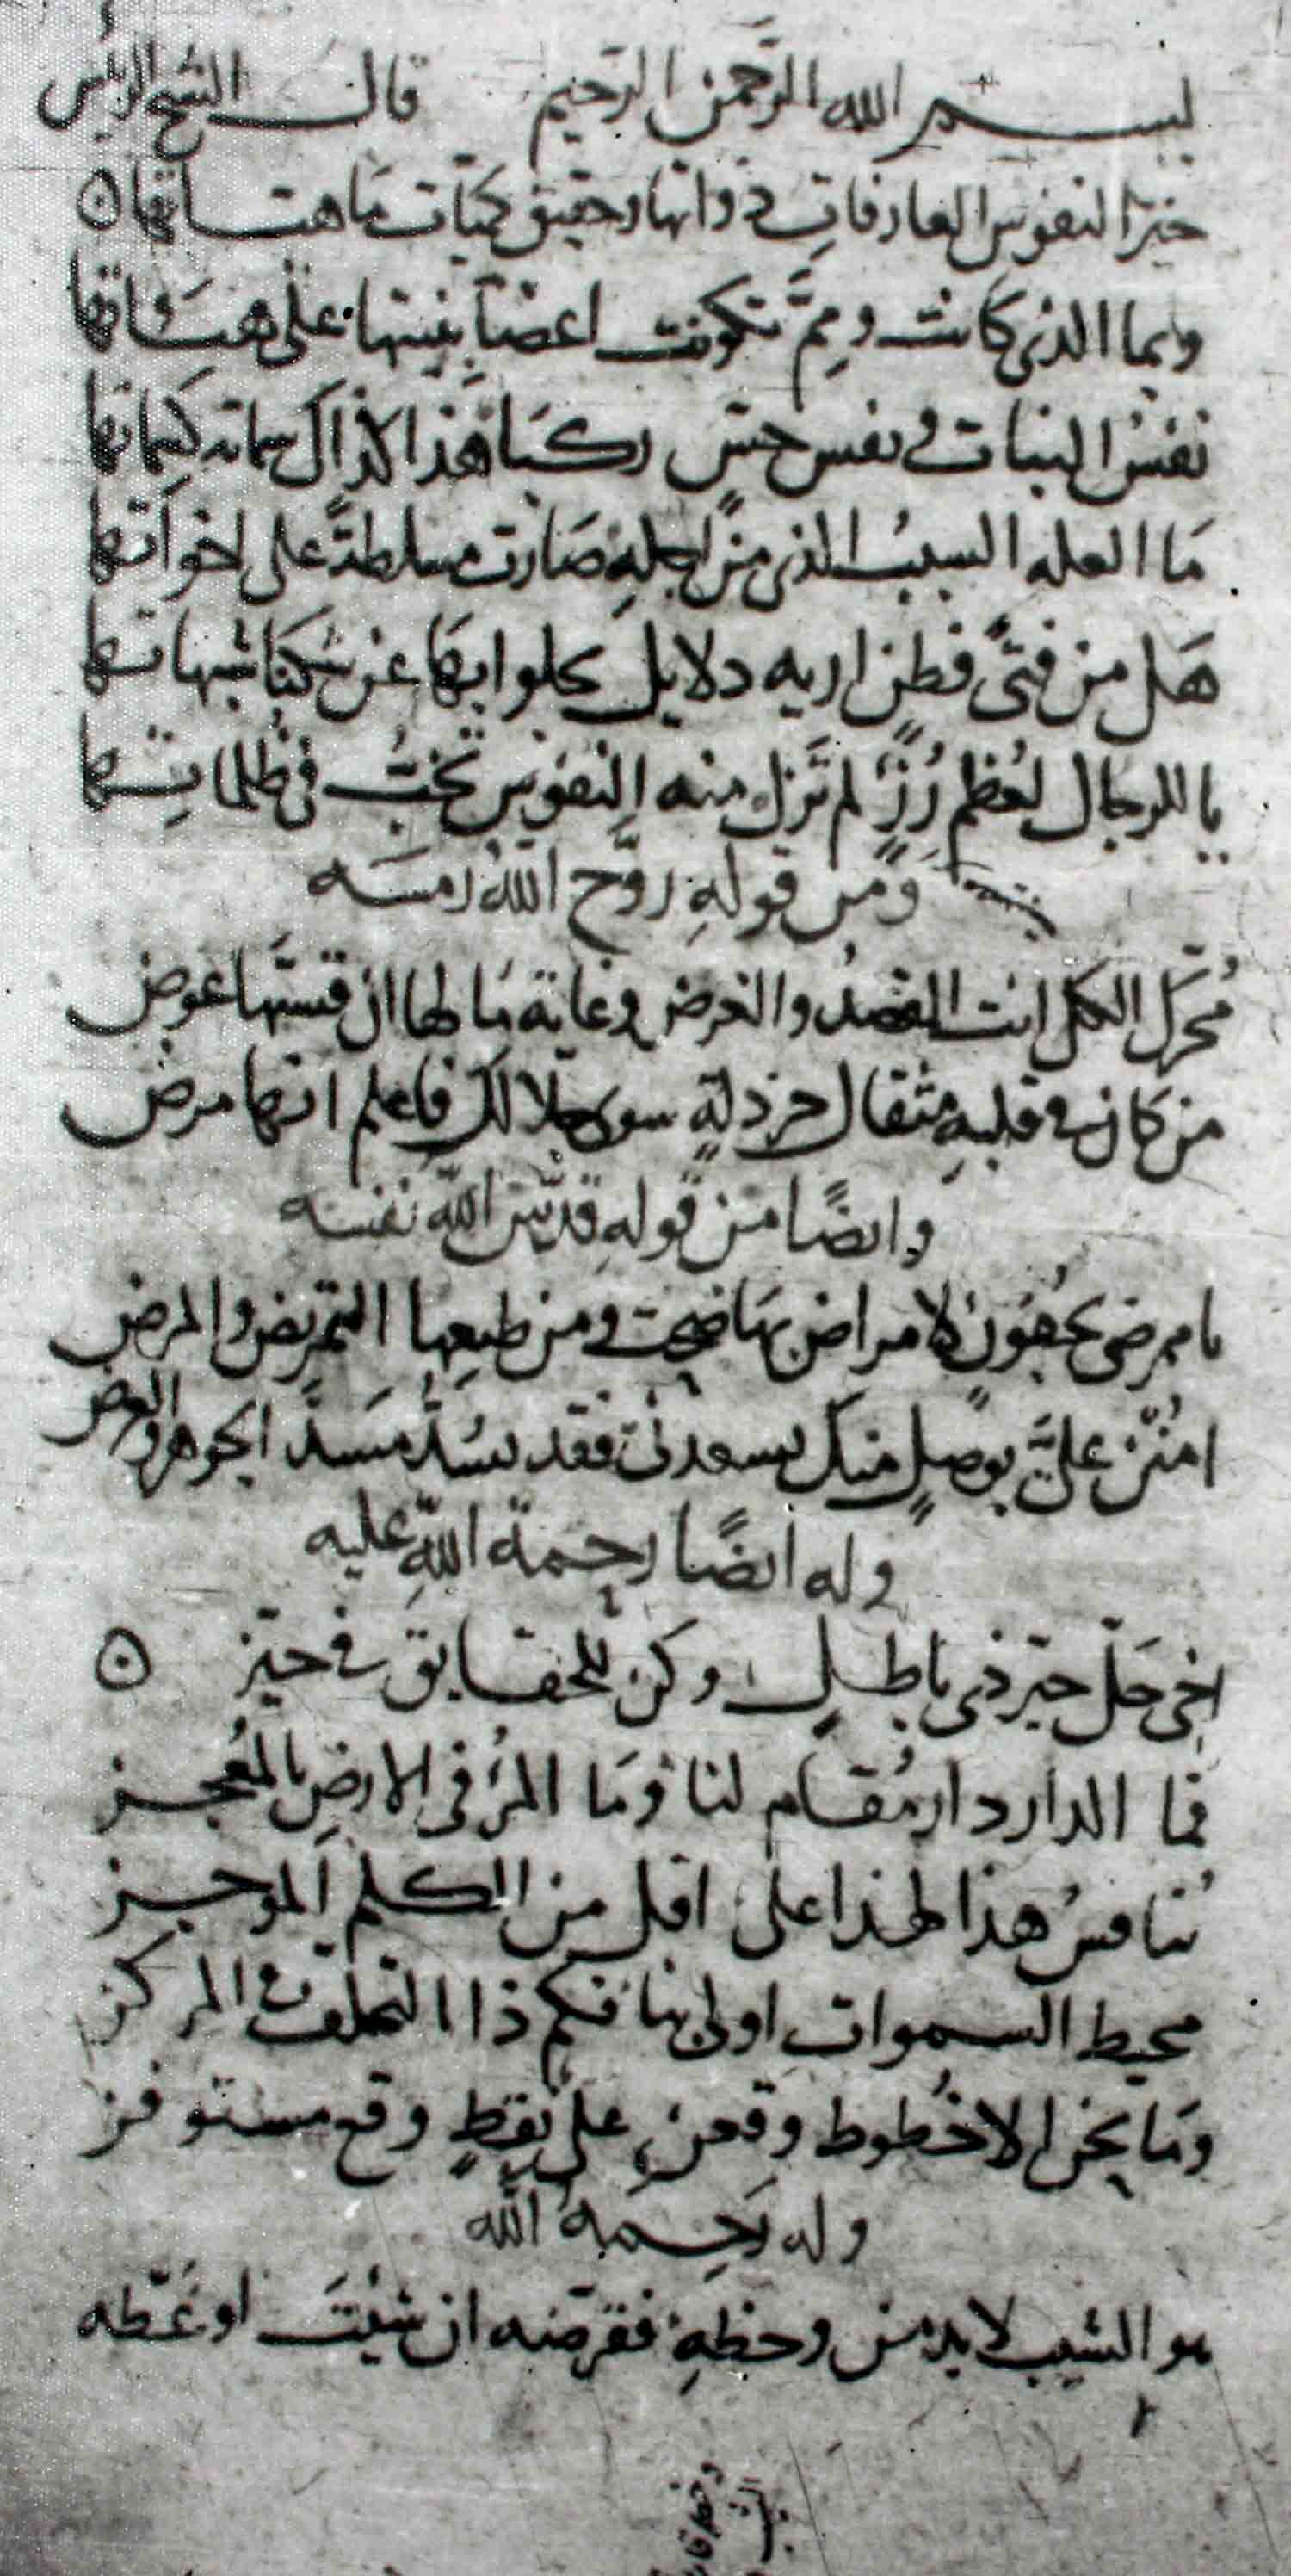 بسم الله الرَّحمن الرَّحيم قال الشيخ الرئيس
خيرُ النفوس العارفاتِ ذواتها وحقيق كميّات مَاهيّاتها
وبما الذي كانت ومِمَّ تكونت اعضآ بنيتها على هيئاتها
نفسُ النبات ونفس حسٍّ ركبَا هذا كذاك سماته كسماتها
مَا العله السببُ الذي من اجلهِ صَارت مسلطةً على اخواتها
هَل من فتًى فطنٍ اريه دلايل يجلوا بها عن شكنا شبهاتها
يا للرجال لعُظم رُزْءٍ لم تَزل منه النفوس تخبُّ في ظلماتِها
وَمن قولهِ روَّح اللهُ رمسَه
مُحَرّك الكل انت القصدُ والغرض وغاية مالها ان قستَها عوض
من كان في قلبهِ مثقال خردلةٍ سوى جلالك فاعلم انها مرض
وايضًا من قوله قدَّس الله نفسه
ياممرضي بجفونٍ لامراض بها ضحت ومن طبعها التمريض والمرض
امنُن عليَّ بوصلٍ منك يسعدني فقد يسُدّ مسَدَّ الجوهر والعرض
وله ايضًا رحمة اللهِ عليه
اخي خَلّ حيّز ذي باطلٍ وكن للحقايق في حيّز
فما الدار دار مُقام لنا ومَا المرُ في الارض بالمُعجز
يُنافسُ هذا لهذا على اقل من الكلم الموجز
محيط السموات اولى بنا فكم ذا التخلف في المركز
ومَا نحن الا خُطوط وقعن على نقطٍ وقع مستوفز
وله رَحِمَهُ الله
هو الشيب لابد من وخطهِ فقرّضه ان شيتَ او غَطّه